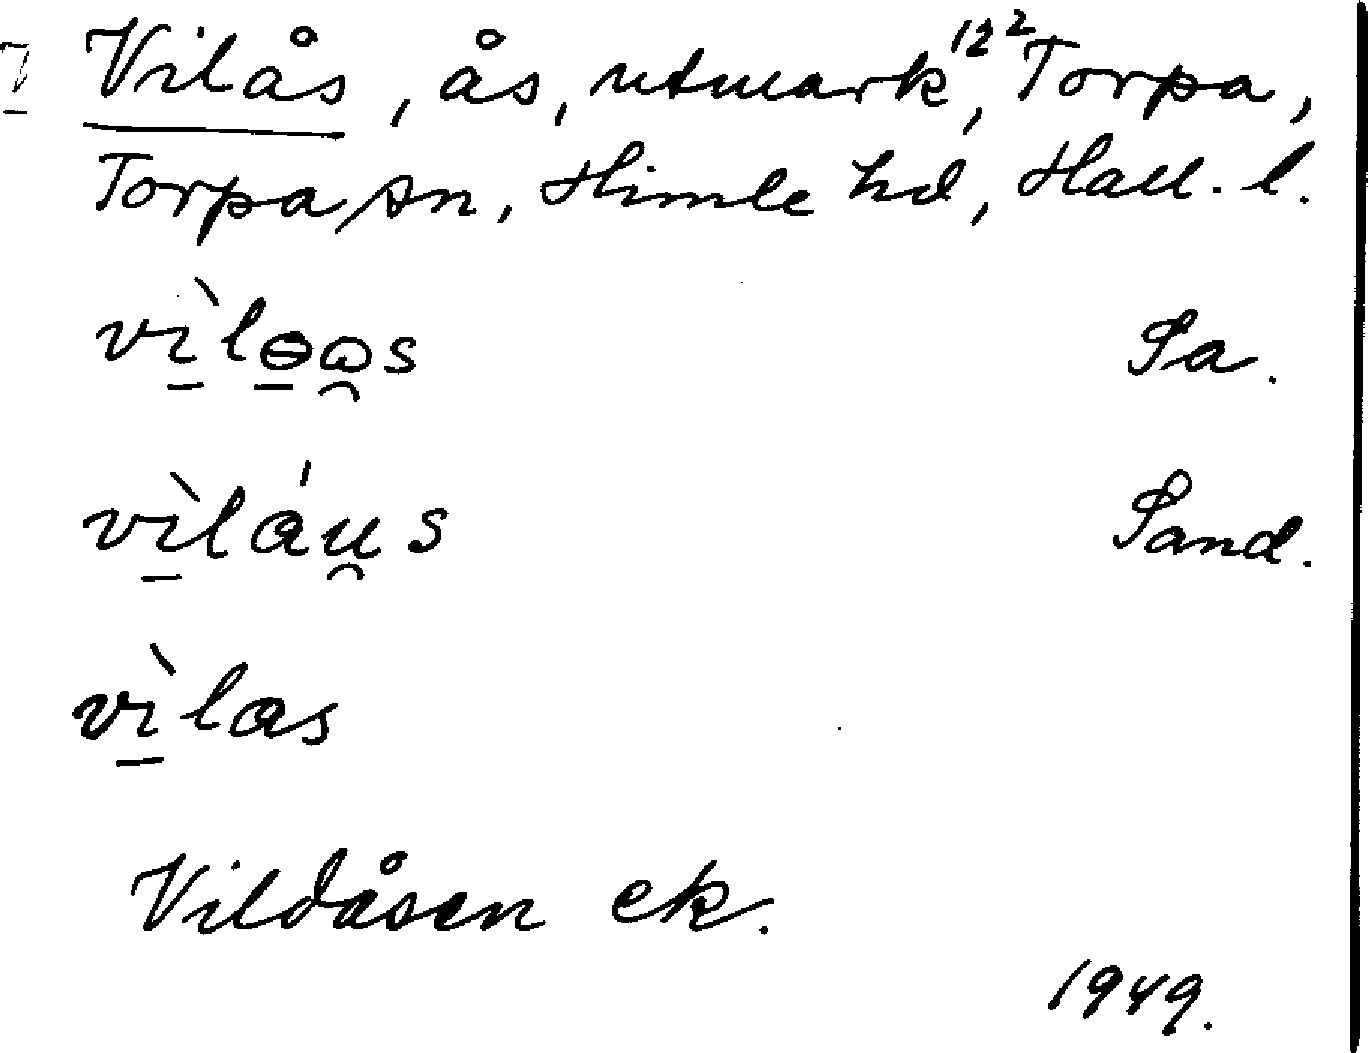 Vilås, ås, utmark, 12² Torpa,
Torpa sn, Himle hd, Hall. l.
vı̱̀lɵ̱ɷ̯s Sa.
vı̱̀láu̯s Sand.
vı̱̀las
Vildåsen ek.
1949.